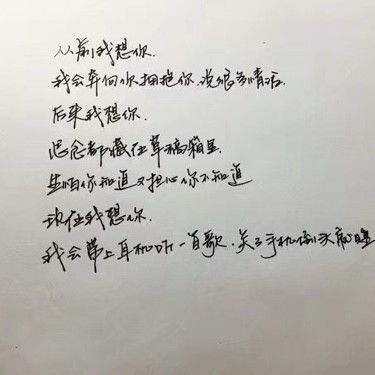 从前我想你.
我会奔向你拥抱你.说很多情话.
后来我想你.
思念都藏在草稿箱里.
生怕你知道又担心你不知道
现在我想你.
我会带上耳机听一首歌.关了手机倒头就睡